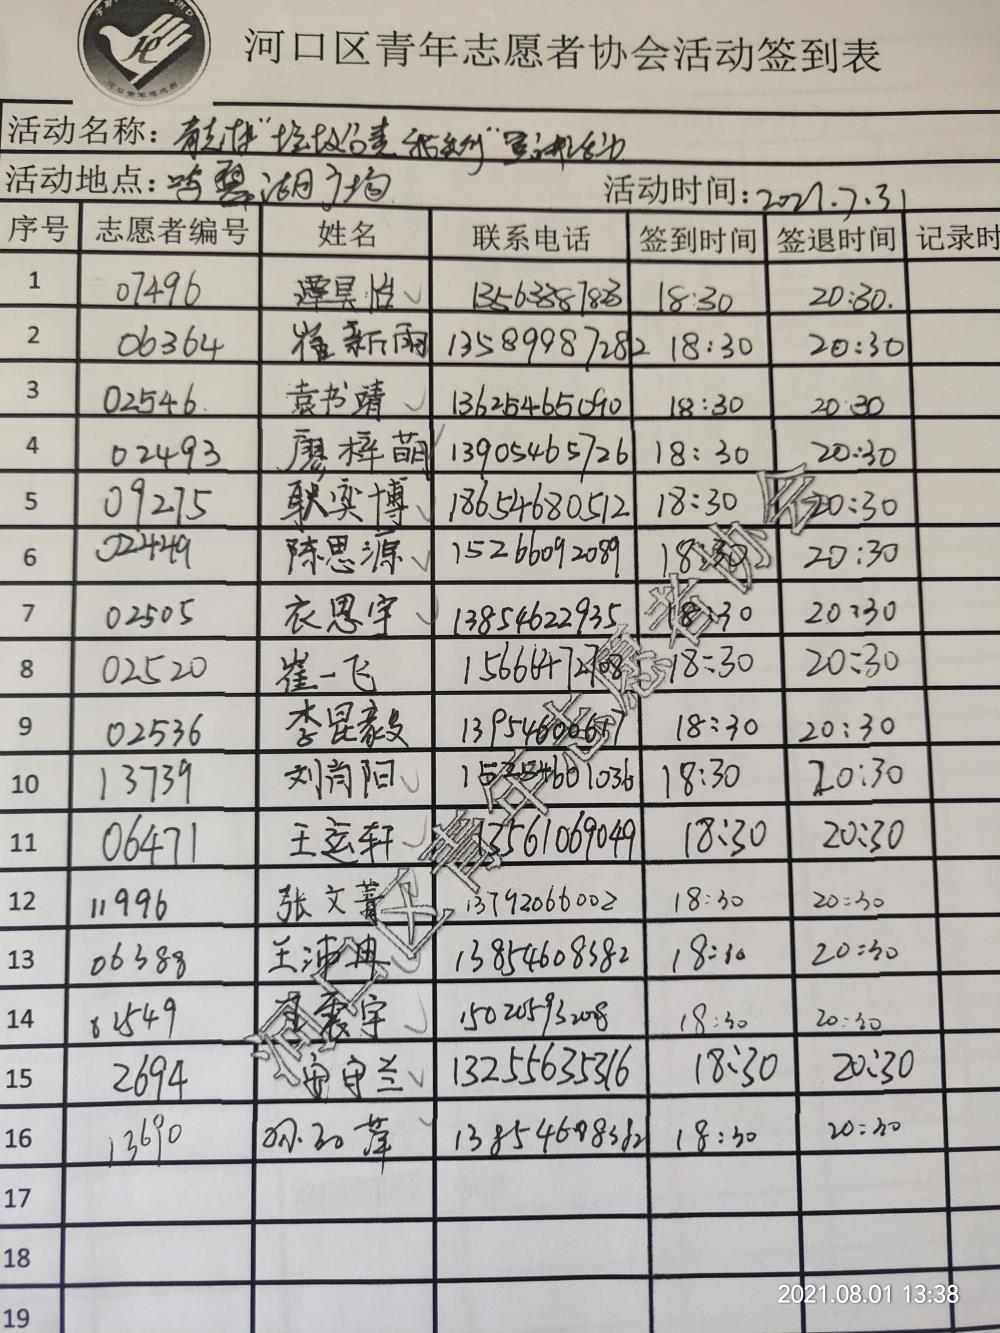 河口区青年志愿者协会活动签到表
活动名称: "垃圾分类 活动
活动地点: 鸣翠湖广场 活动时间: 2021.7.31
序号 志愿者编号 姓名 联系电话 签到时间 签退时间 记录时
1 07496 谭昊 18:30 20:30.
2 06364 崔新雨 13589987282 18:30 20:30
3 02546. 袁书靖 13625465090 18:30 20:30
4 02493 廖梓萌 13905465726 18:30 20:30
5 09275 耿奕博 18654680512 18:30 20:30
6 02449 陈思源 15266092089 18:30 20:30
7 02505 衣思宇 13854622935 18:30 20:30
8 02520 崔一飞 15666472708 18:30 20:30
9 02536 李昆毅 18:30 20:30
10 13739 刘尚阳 18:30 20:30
11 06471 王运轩 13561069049 18:30 20:30
12 11996 张文菁 13792066002 18:30 20:30
13 06388 王沛冉 13854608382 18:30 20:30
14 宇 15020593208 18:30 20:30
15 2694 安守兰 13255635316 18:30 20:30
16 13690 萍 13854608382 18:30 20:30
17
18
19
河口区青年志愿者协会
2021.08.01 13:38